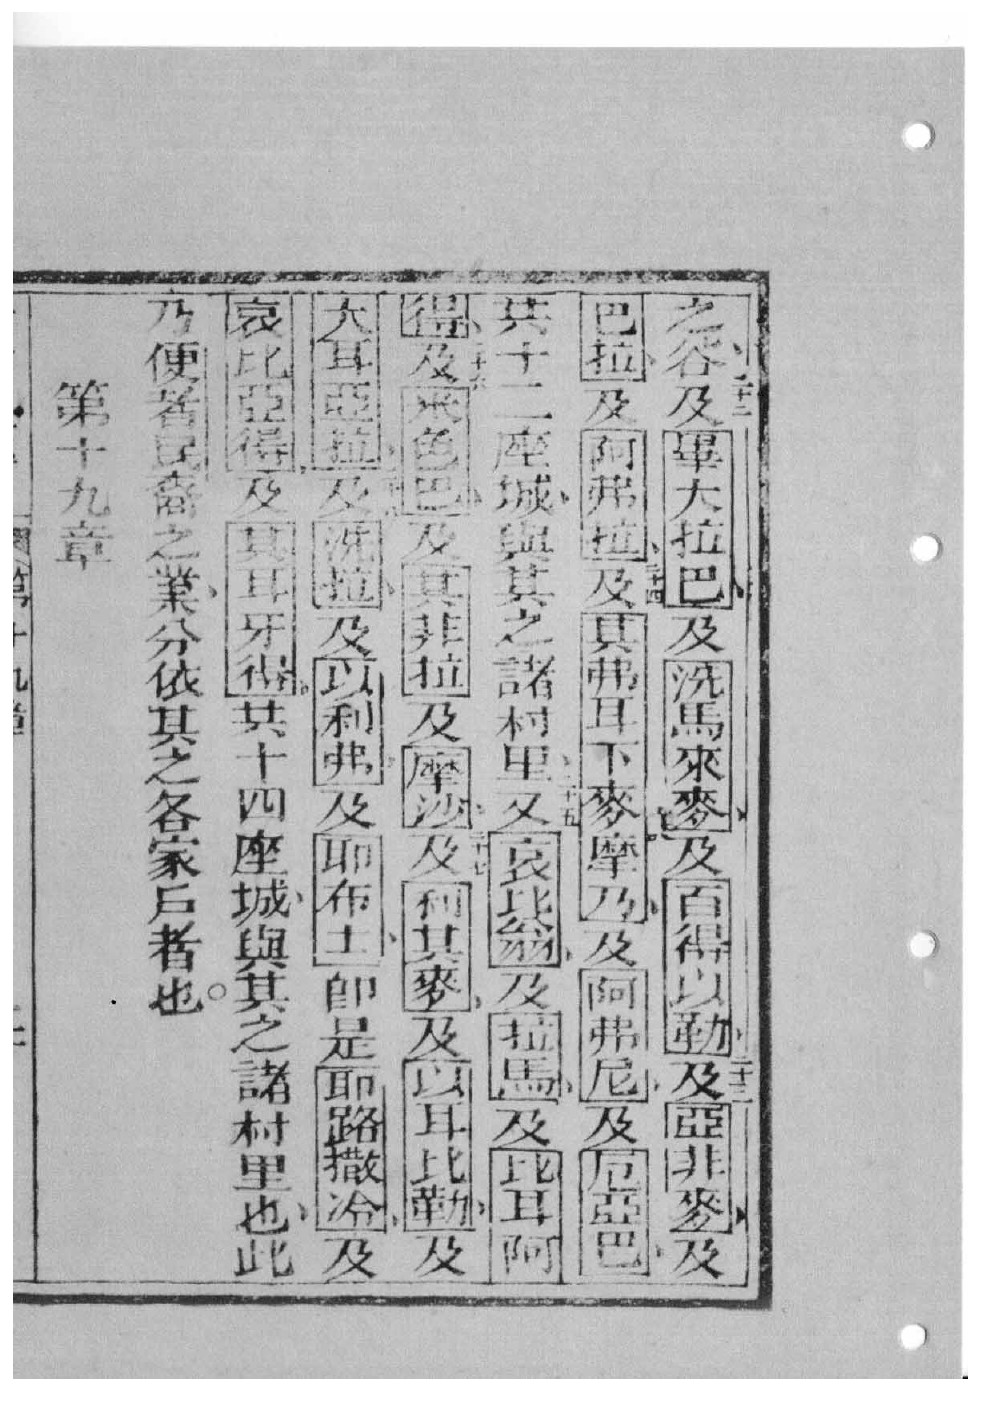 之谷及畢大拉巴及洗馬來麥及百得以勒及亞非麥及
巴拉及阿弗拉及其弗耳下麥摩乃及阿弗尼及厄亞巴
共十二座城與其之諸村里又哀比翁及拉馬及比耳阿
得及米色巴及其非拉及摩沙及利其麥及以耳比勒及
大耳亞拉及洗拉及以利弗及耶布士卽是耶路撒冷及
哀比亞得及其耳牙得共十四座城與其之諸村里也此
乃便者民裔之業分依其之各家戶者也
第十九章
第十九章